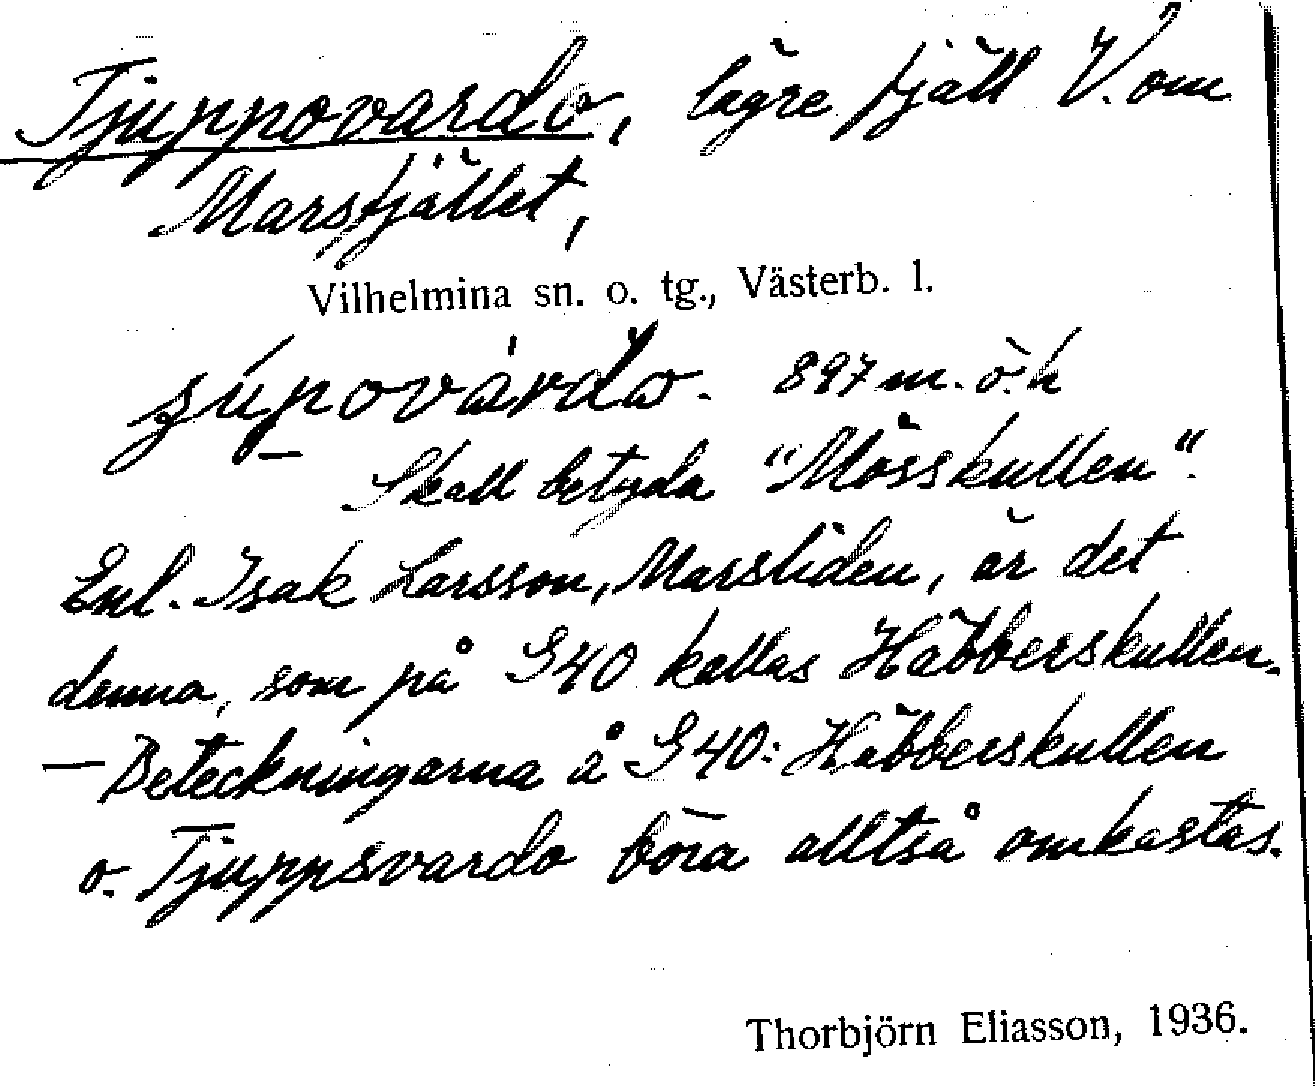 Tjuppovardo, lägre fjäll V. om
Marsfjället,
Vilhelmina sn. o. tg., Västerb. l.
897 m. ö. h
Skall betyda "Mösskullen".
Enl. Isak Larsson, Marsliden, är det
denna, som på G40 kallas Häbberskullen.
— Beteckningarna å G40: Häbberskullen
o. Tjuppsvardo böra alltså omkastas.
Thorbjörn Eliasson, 1936.